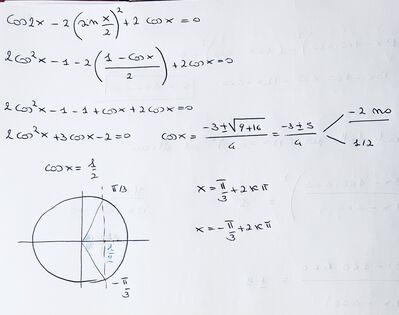 cos2x - 2(sin x/2)² + 2 cosx = 0
2cos²x - 1 - 2((1 - cosx)/2) + 2cosx = 0
2cos²x - 1 - 1 + cosx + 2cosx = 0
2cos²x + 3cosx - 2 = 0
cosx = (-3 ± √(9+16))/4 = (-3 ± 5)/4
-2 no
1/2
cosx = 1/2
x = π/3 + 2kπ
x = -π/3 + 2kπ
π/3
1/2
-π/3